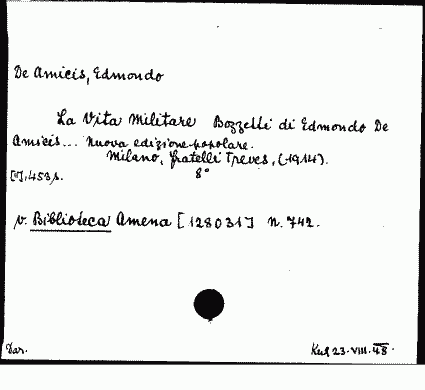 De Amicis, Edmondo
La Vita Militare Bozzetti di Edmondo De
Amicis... Nuova edizione popolare.
Milano, Fratelli Treves, (1914).
8°
453 p.
v. Biblioteca Amena [128031] n. 742.
Dar.
23.VIII.48.